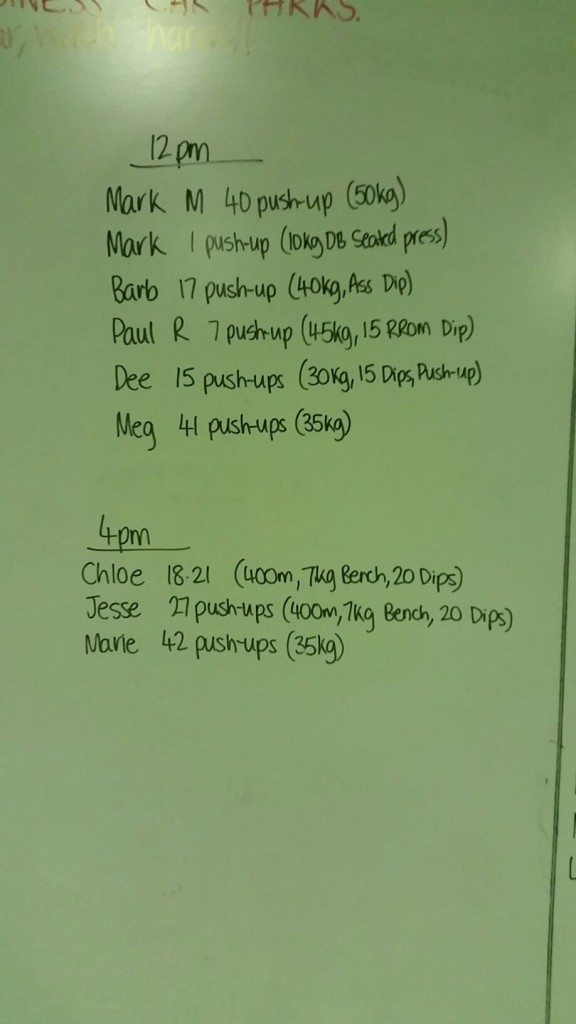 CAR PARKS.
12pm
Mark M 40 push-up (50kg)
Mark 1 push-up (10kg DB Seated press)
Barb 17 push-up (40kg, Ass Dip)
Paul R 7 push-up (45kg, 15 RROM Dip)
Dee 15 push-ups (30kg, 15 Dips, Push-up)
Meg 41 push-ups (35kg)
4pm
Chloe 18.21 (400m, 7kg Bench, 20 Dips)
Jesse 27 push-ups (400m, 7kg Bench, 20 Dips)
Marie 42 push-ups (35kg)